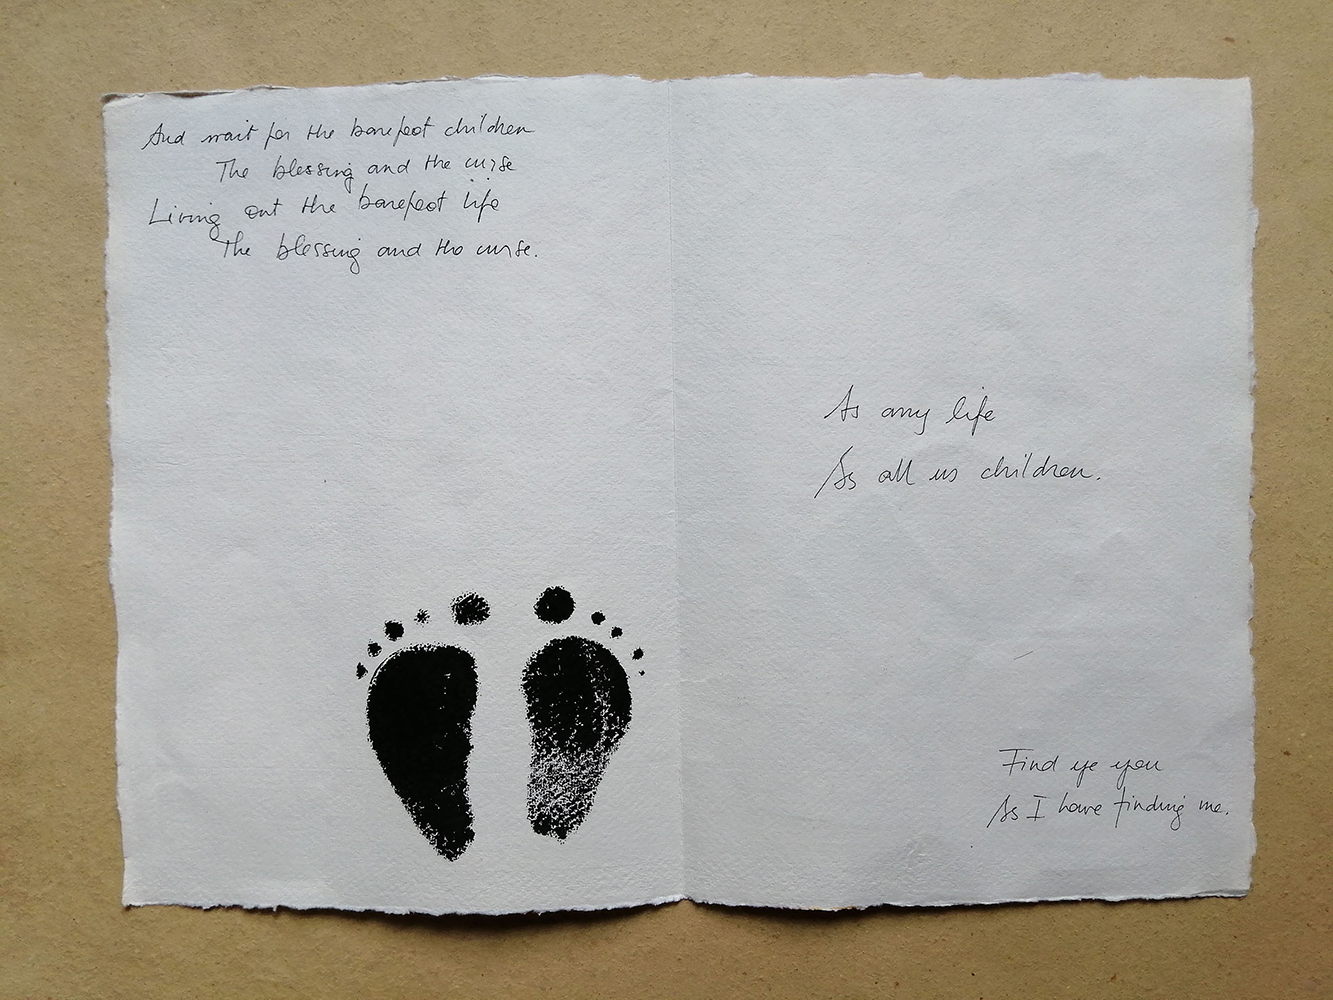 And wait for the barefoot children
The blessing and the curse
Living out the barefoot life
The blessing and the curse.
As any life
As all us children.
Find ye you
As I have finding me.